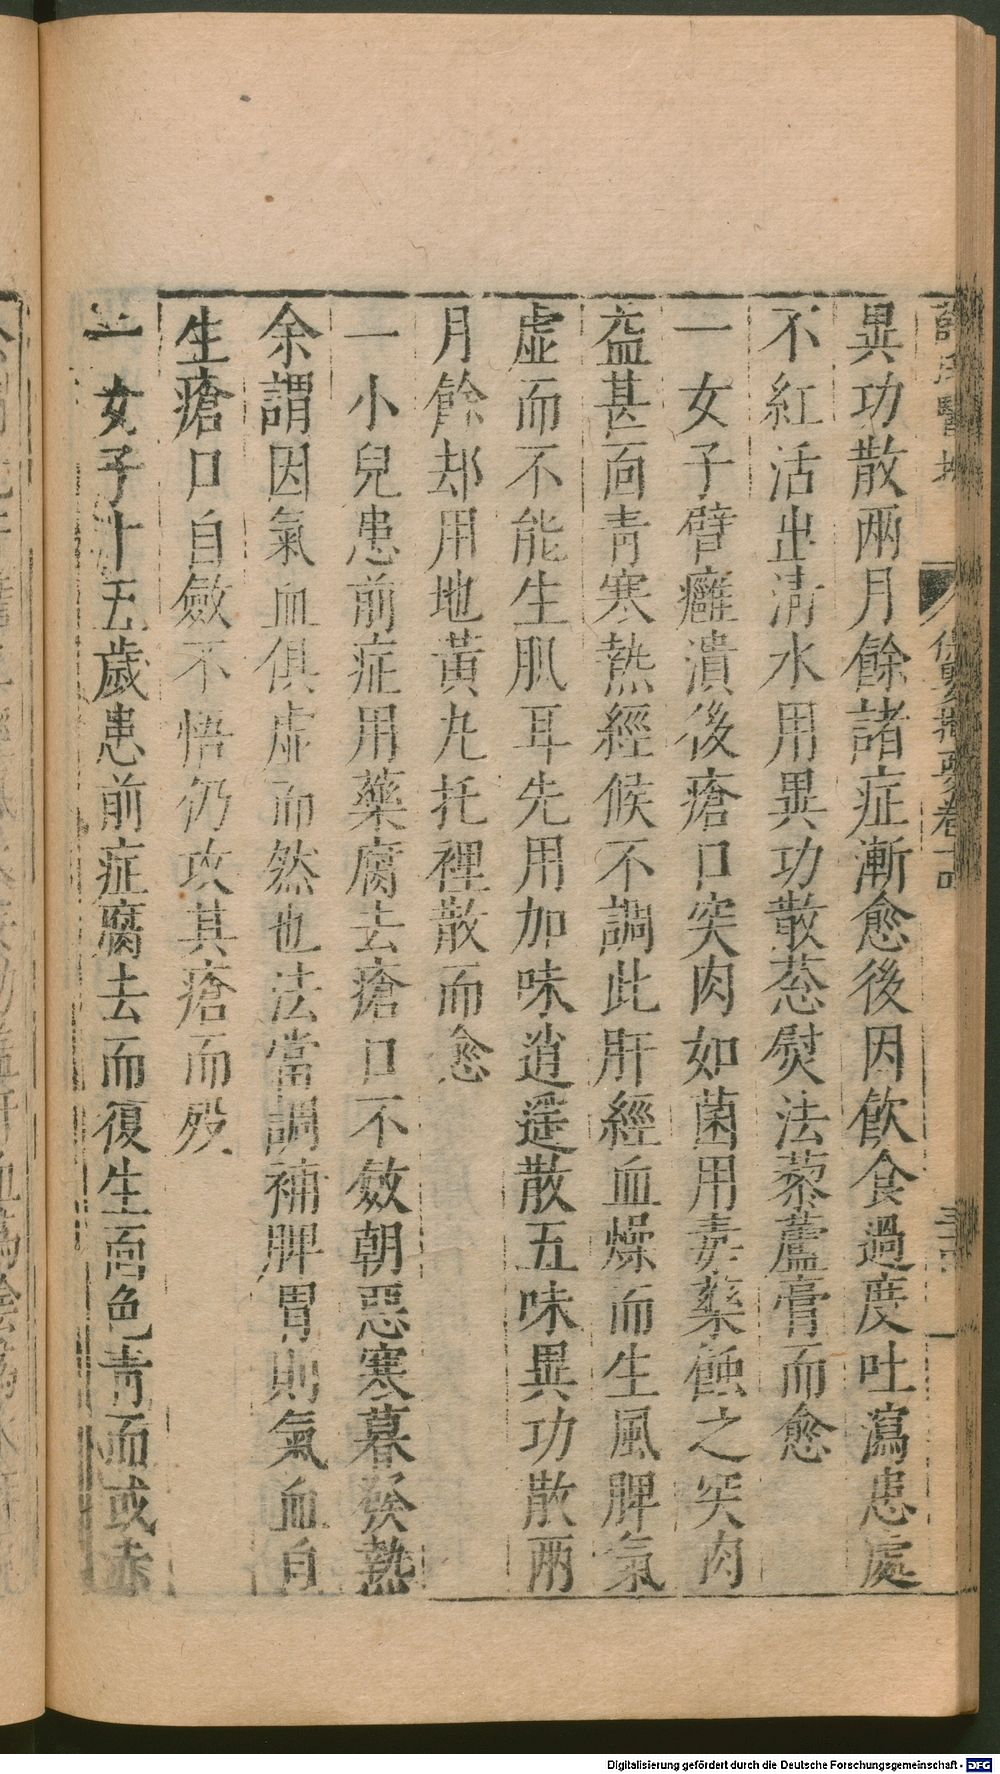 異功散兩月餘諸症漸愈後因飲食過度吐瀉患處
不紅活出淸水用異功散葱熨法藜蘆膏而愈
一女子臂癰潰後瘡口突肉如菌用毒藥蝕之突肉
益甚面靑寒熱經候不調此肝經血燥而生風脾氣
虛而不能生肌耳先用加味逍遥散五味異功散兩
月餘却用地黃丸托裡散而愈
一小兒患前症用藥腐去瘡口不斂朝惡寒暮發熱
余謂因氣血俱虛而然也法當調補脾胃則氣血自
生瘡口自斂不悟仍攻其瘡而歿
一女子十五歲患前症腐去而復生面色靑而或赤
Digitalisierung gefördert durch die Deutsche Forschungsgemeinschaft - DFG